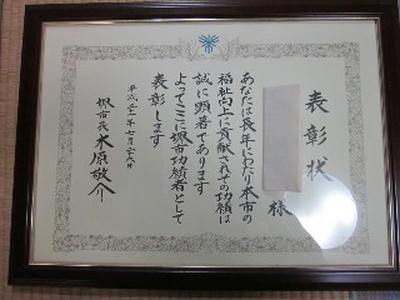 表彰状
様
あなたは長年にわたり本市の
福祉向上に貢献されその功績は
誠に顕著であります
よってここに堺市功績者として
表彰します
堺市長 木原敬介